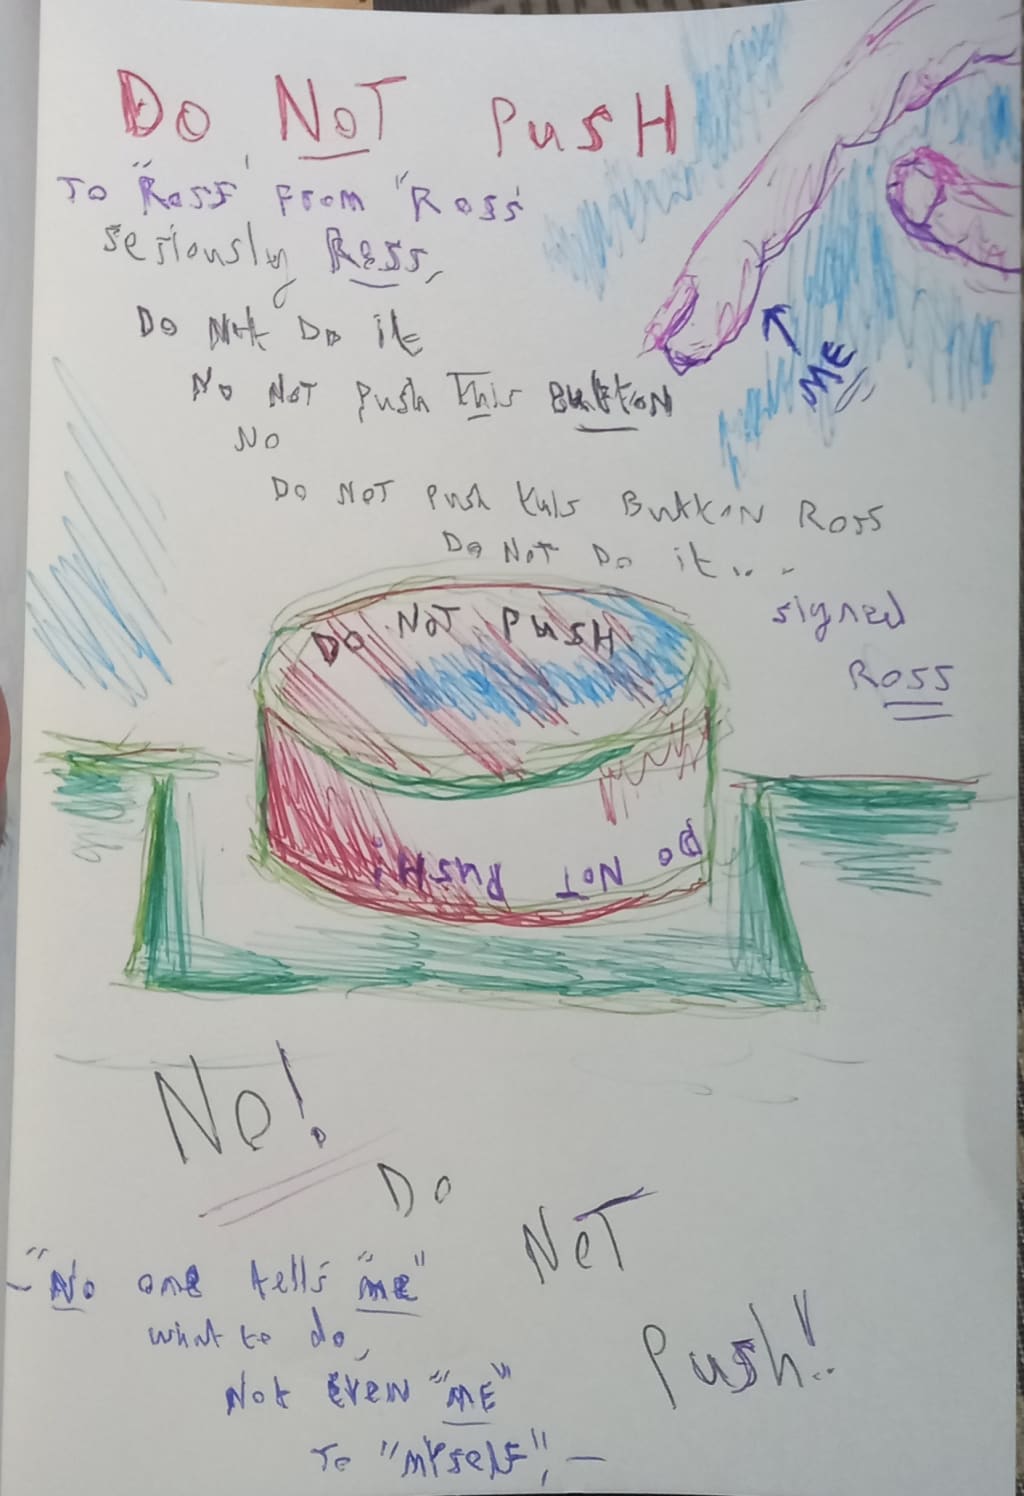 Do NOT PusH
To "Ross" From "Ross"
seriously Ross,
Do Not Do it
No NOT Push This Button
No
Do NOT Push this Button Ross
Do Not Do it...
signed
Ross
ME
DO NOT PUSH
Do NOT PusH!
No!
Do
NoT
Push!!
-"No one tells "me"
what to do,
Not even "ME"
To "MYself", -